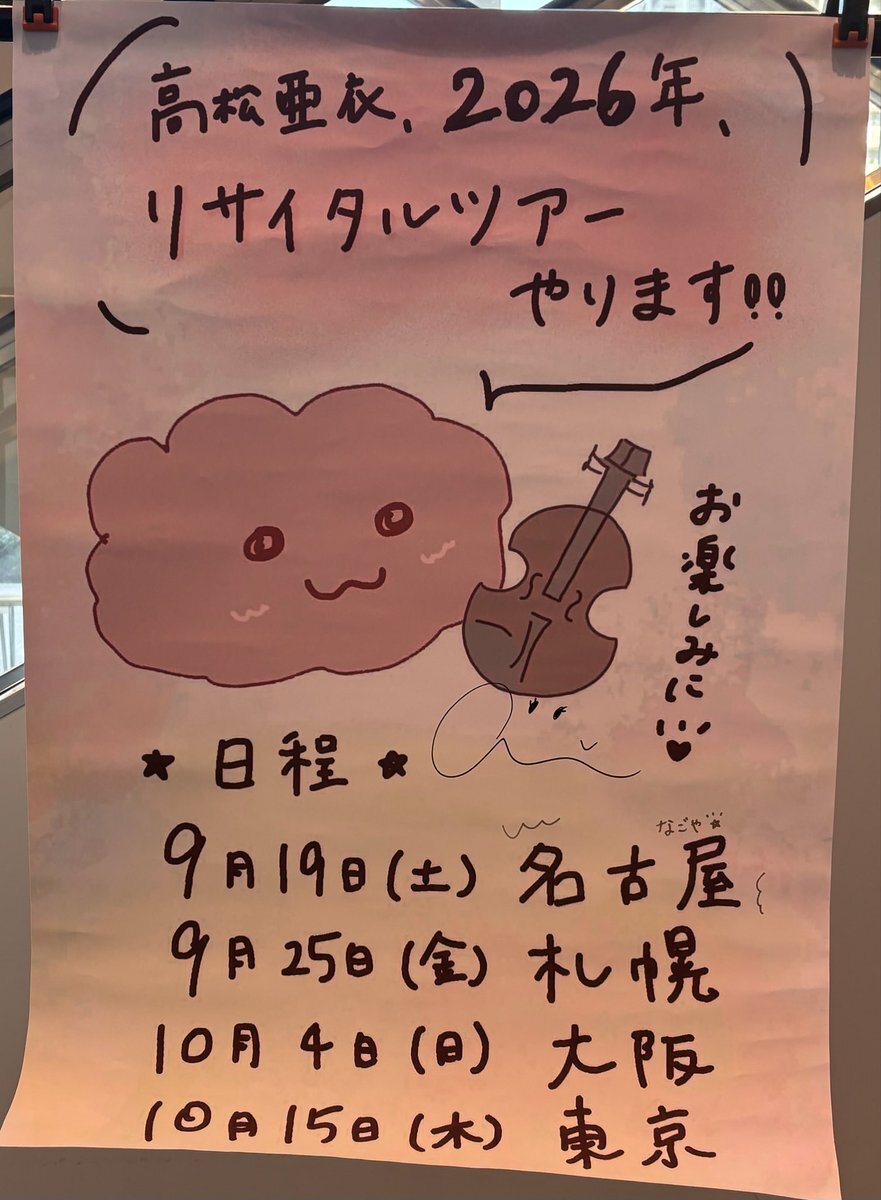 高松亜衣、2026年、
リサイタルツアー
やります!!
お楽しみに
★日程★
なごや
9月19日(土) 名古屋
9月25日(金) 札幌
10月4日(日) 大阪
10月15日(木) 東京